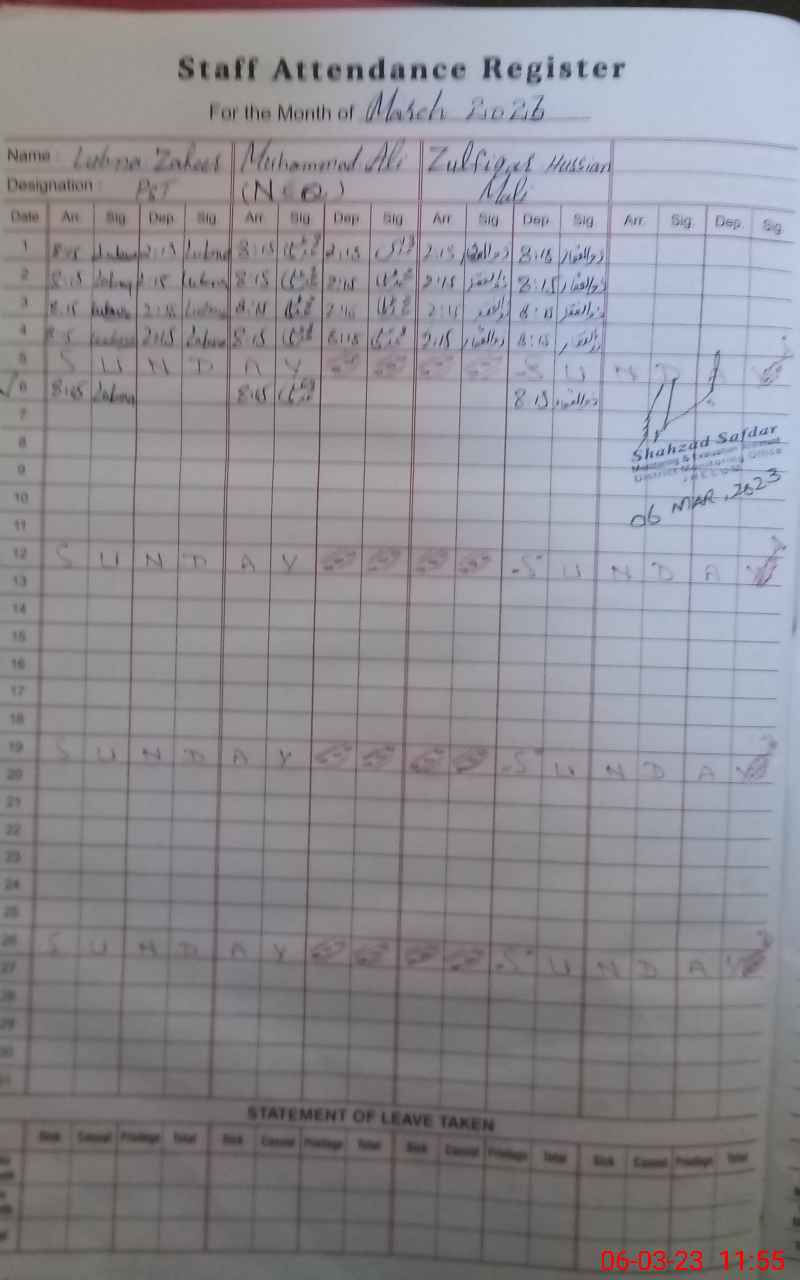 Staff Attendance Register
For the Month of March 2023
Name : Lubna Zaheer Muhammad Ali Zulfiqar Hussian
Designation : PST (N S B) Mali
Date Arr. Sig. Dep. Sig. Arr. Sig. Dep. Sig. Arr. Sig. Dep. Sig. Arr. Sig. Dep. Sig.
1 8:15 Lubna 2:15 Lubna 8:15 2:15 2:15 ذوالفقار 8:15 ذوالفقار
2 8:15 Lubna 2:15 Lubna 8:15 2:15 2:15 ذوالفقار 8:15 ذوالفقار
3 8:15 Lubna 2:15 Lubna 8:15 2:15 2:15 ذوالفقار 8:15 ذوالفقار
4 8:15 Lubna 2:15 Lubna 8:15 2:15 ذوالفقار 8:15 ذوالفقار
5 S U N D A Y S U N D A Y
6 8:45 Lubna 8:45 8:15 ذوالفقار
7
8
Shahzad Safdar
Monitoring & Evaluation Assistant
District Monitoring Office
9
10
06 MAR, 2023
11
12 S U N D A Y S U N D A Y
13
14
15
16
17
18
19 S U N D A Y S U N D A Y
20
21
22
23
24
25
26 S U N D A Y S U N D A Y
27
28
29
30
31
STATEMENT OF LEAVE TAKEN
Sick Casual Privilege Total Sick Casual Privilege Total Sick Casual Privilege Total Sick Casual Privilege Total
06-03-23 11:55